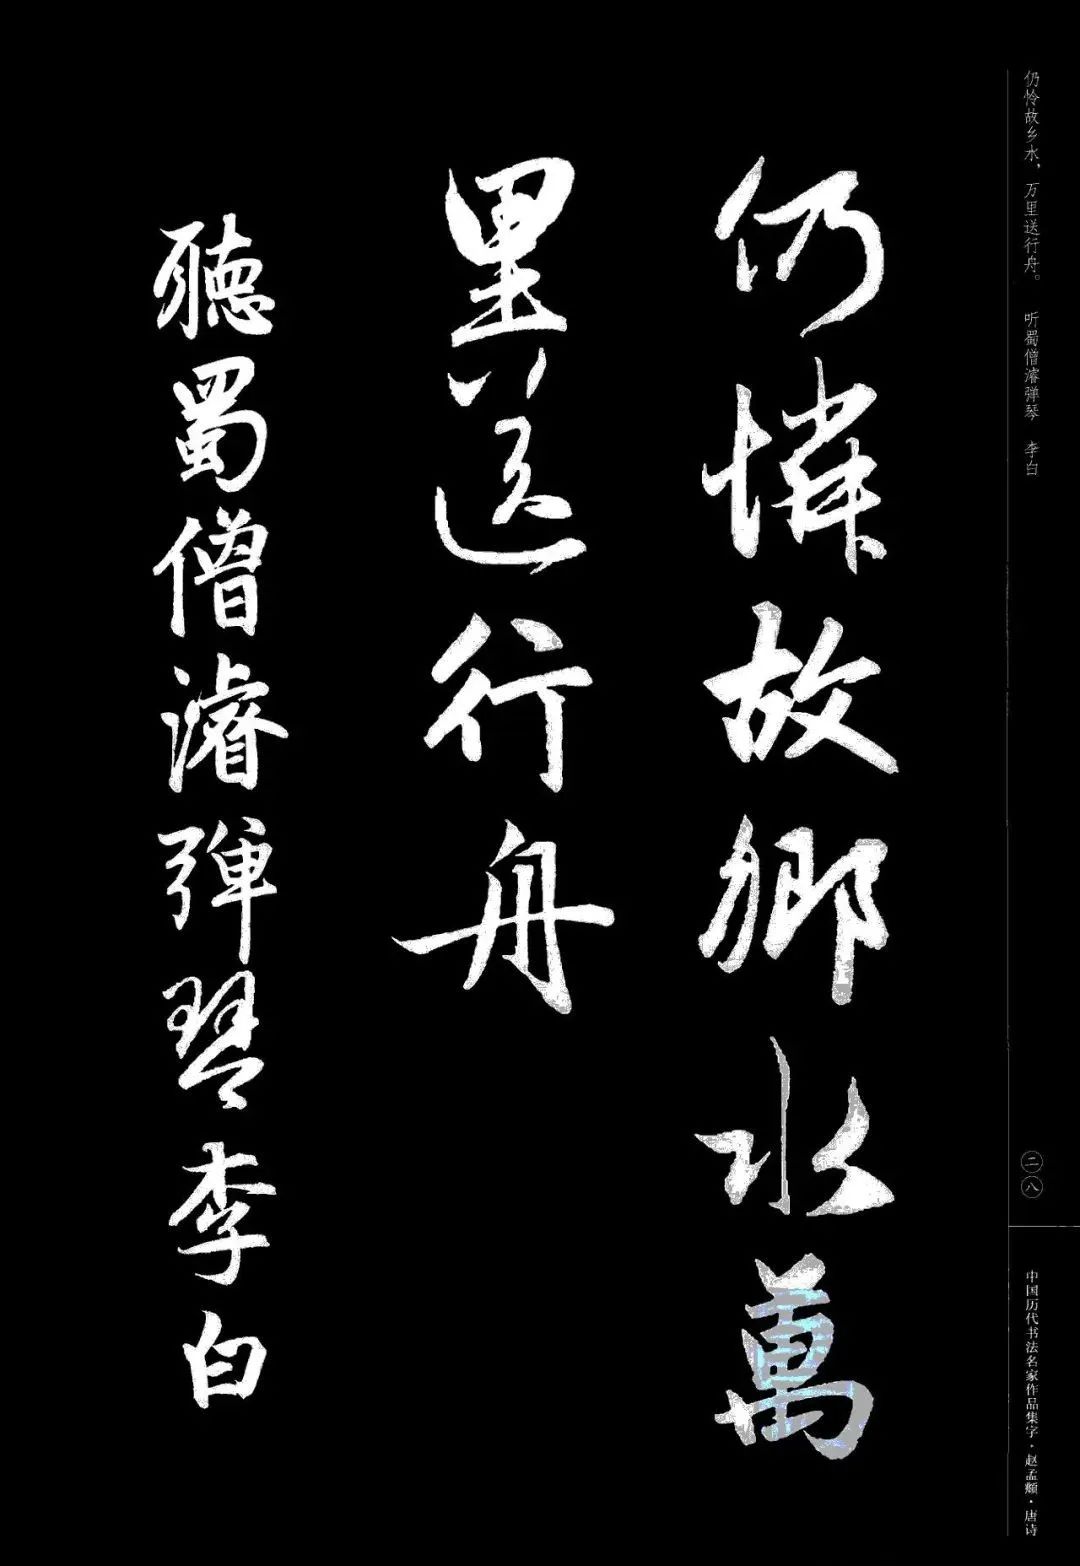 仍怜故乡水，万里送行舟。 听蜀僧濬弹琴 李白
仍憐故鄉水萬
里送行舟
聽蜀僧濬彈琴李白
二八
中国历代书法名家作品集字·赵孟頫·唐诗